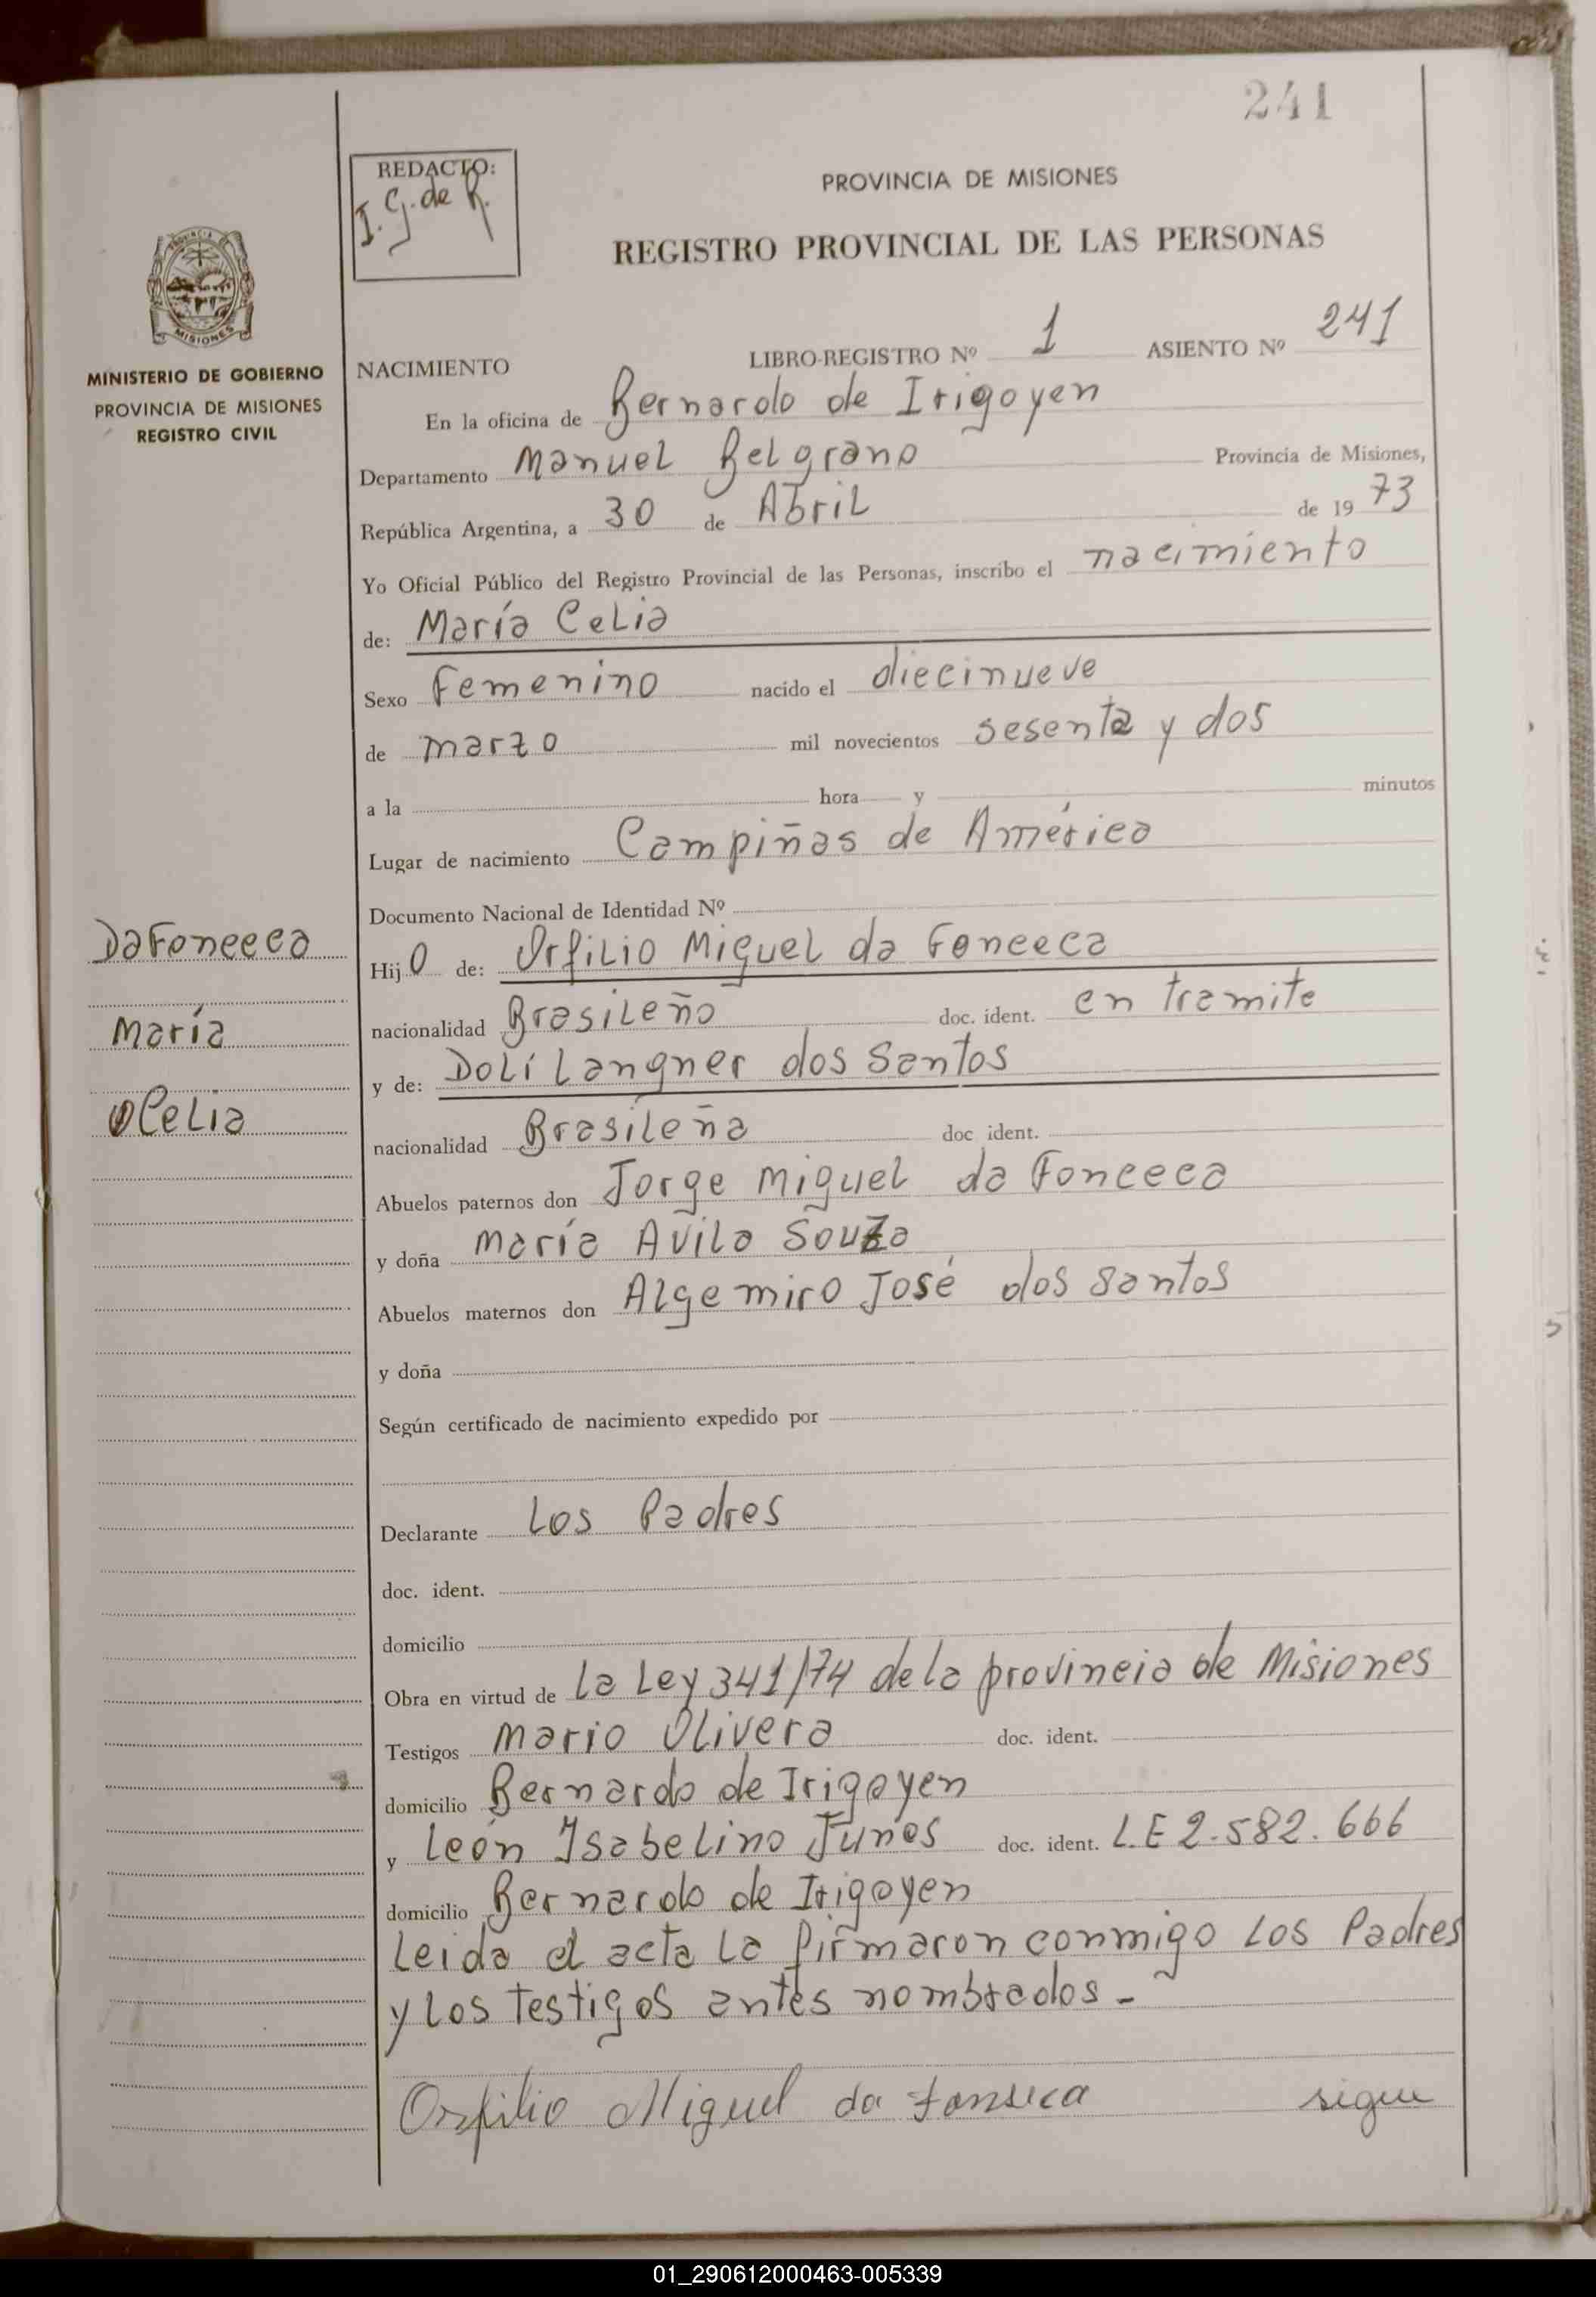 241
REDACTO:
I. G. de R.
PROVINCIA DE MISIONES
REGISTRO PROVINCIAL DE LAS PERSONAS
MISIONES
MINISTERIO DE GOBIERNO
PROVINCIA DE MISIONES
REGISTRO CIVIL
NACIMIENTO LIBRO-REGISTRO Nº 1 ASIENTO Nº 241
En la oficina de Bernardo de Irigoyen
Departamento Manuel Belgrano Provincia de Misiones,
República Argentina, a 30 de Abril de 19 73
Yo Oficial Público del Registro Provincial de las Personas, inscribo el nacimiento
de: María Celia
Sexo Femenino nacido el diecinueve
de marzo mil novecientos sesenta y dos
a la hora y minutos
Lugar de nacimiento Campiñas de América
Documento Nacional de Identidad Nº
DaFoneeca
Hij O de: Orfilio Miguel da Foneeca
nacionalidad Brasileño doc. ident. en tramite
María
y de: Dolí Langner dos Santos
Celia
nacionalidad Brasileña doc ident.
Abuelos paternos don Jorge Miguel da Fonceca
y doña María Avila Souza
Abuelos maternos don Algemiro José dos Santos
y doña
Según certificado de nacimiento expedido por
Declarante Los Padres
doc. ident.
domicilio
Obra en virtud de la Ley 341/74 de la provincia de Misiones
Testigos Mario Olivera doc. ident.
domicilio Bernardo de Irigoyen
y León Isabelino Junes doc. ident. L.E 2.582.666
domicilio Bernardo de Irigoyen
Leida el acta la firmaron conmigo Los Padres
y Los testigos antes nombrados -
Orfilio Miguel da Fonseca sigue
01_290612000463-005339